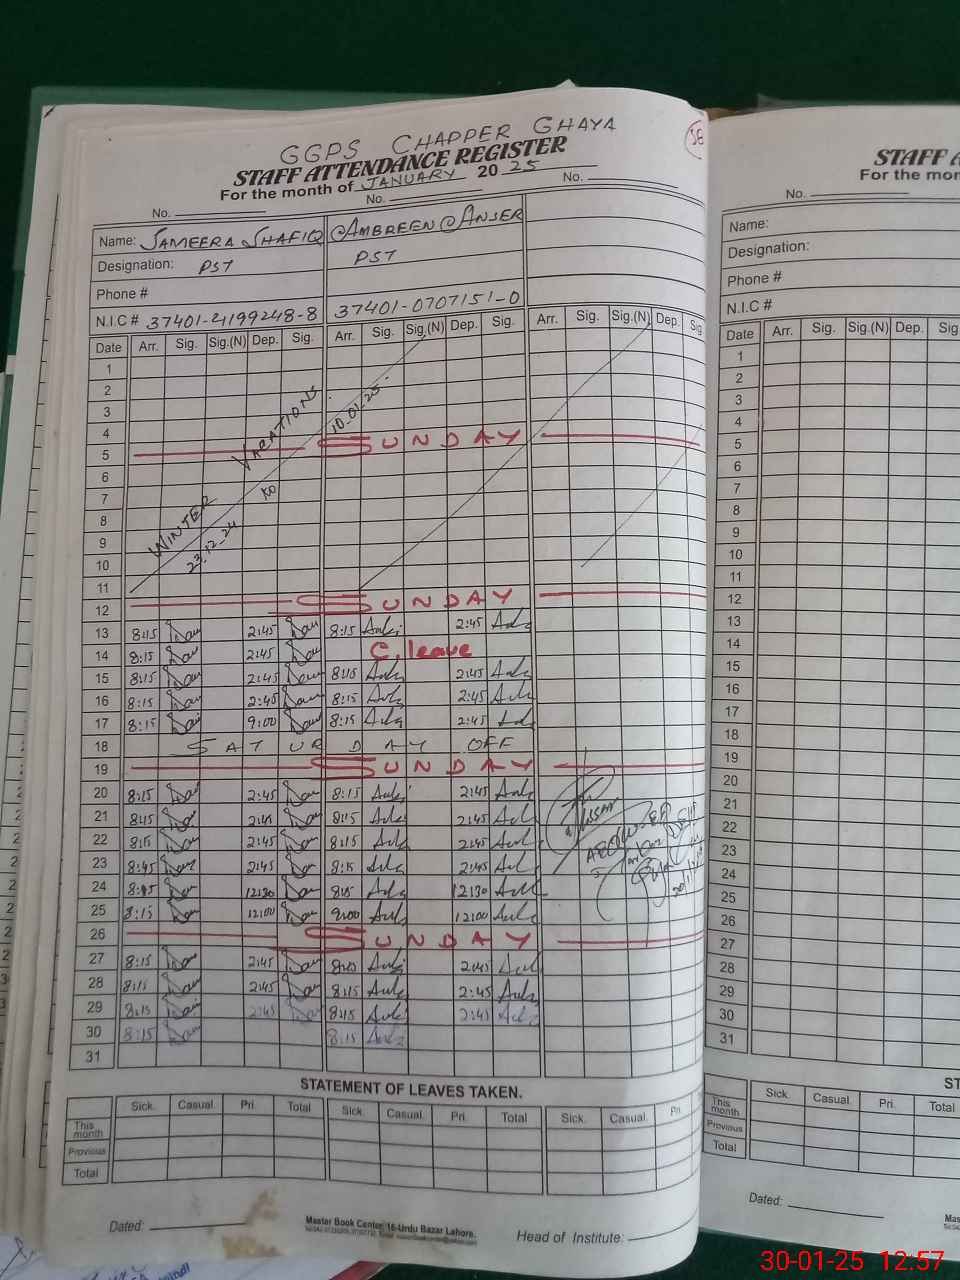 GGPS CHAPPER GHAYA
58
STAFF ATTENDANCE REGISTER
For the month of JANUARY 20 25
No. No. No.
Name: SAMEERA SHAFIQ AMBREEN ANSER
Designation: PST PST
Phone #
N.I.C # 37401-4199248-8 37401-0707151-0
Date Arr. Sig. Sig.(N) Dep. Sig. Arr. Sig. Sig.(N) Dep. Sig. Arr. Sig. Sig.(N) Dep. Sig
1
2
3
4
5 SUNDAY
6
7
8
9
10
11
WINTER VACATIONS
23.12.24 to 10.01.25
12 SUNDAY
13 8:15 2:45 8:15 2:45
14 8:15 2:45 C. leave
15 8:15 2:45 8:15 2:45
16 8:15 2:45 8:15 2:45
17 8:15 9:00 8:15 2:45
18 SATURDAY OFF
19 SUNDAY
20 8:15 2:45 8:15 2:45
21 8:15 2:45 8:15 2:45
22 8:15 2:45 8:15 2:45
23 8:45 2:45 8:15 2:45
24 8:15 12:30 8:15 12:30
25 8:15 12:00 9:00 12:00
26 SUNDAY
27 8:15 2:45 2:45
28 8:15 2:45 8:15 2:45
29 8:15 2:45 8:15 2:45
30 8:15 8:15
31
STATEMENT OF LEAVES TAKEN.
Sick. Casual. Pri. Total Sick. Casual. Pri. Total Sick. Casual. Pri.
This month
Previous
Total
Dated: Master Book Center, 16-Urdu Bazar Lahore. Head of Institute:
STAFF A
For the mon
No.
Name:
Designation:
Phone #
N.I.C #
Date Arr. Sig. Sig.(N) Dep. Sig
1
2
3
4
5
6
7
8
9
10
11
12
13
14
15
16
17
18
19
20
21
22
23
24
25
26
27
28
29
30
31
ST
Sick. Casual. Pri. Total
This month
Previous
Total
Dated:
Mas
30-01-25 12:57